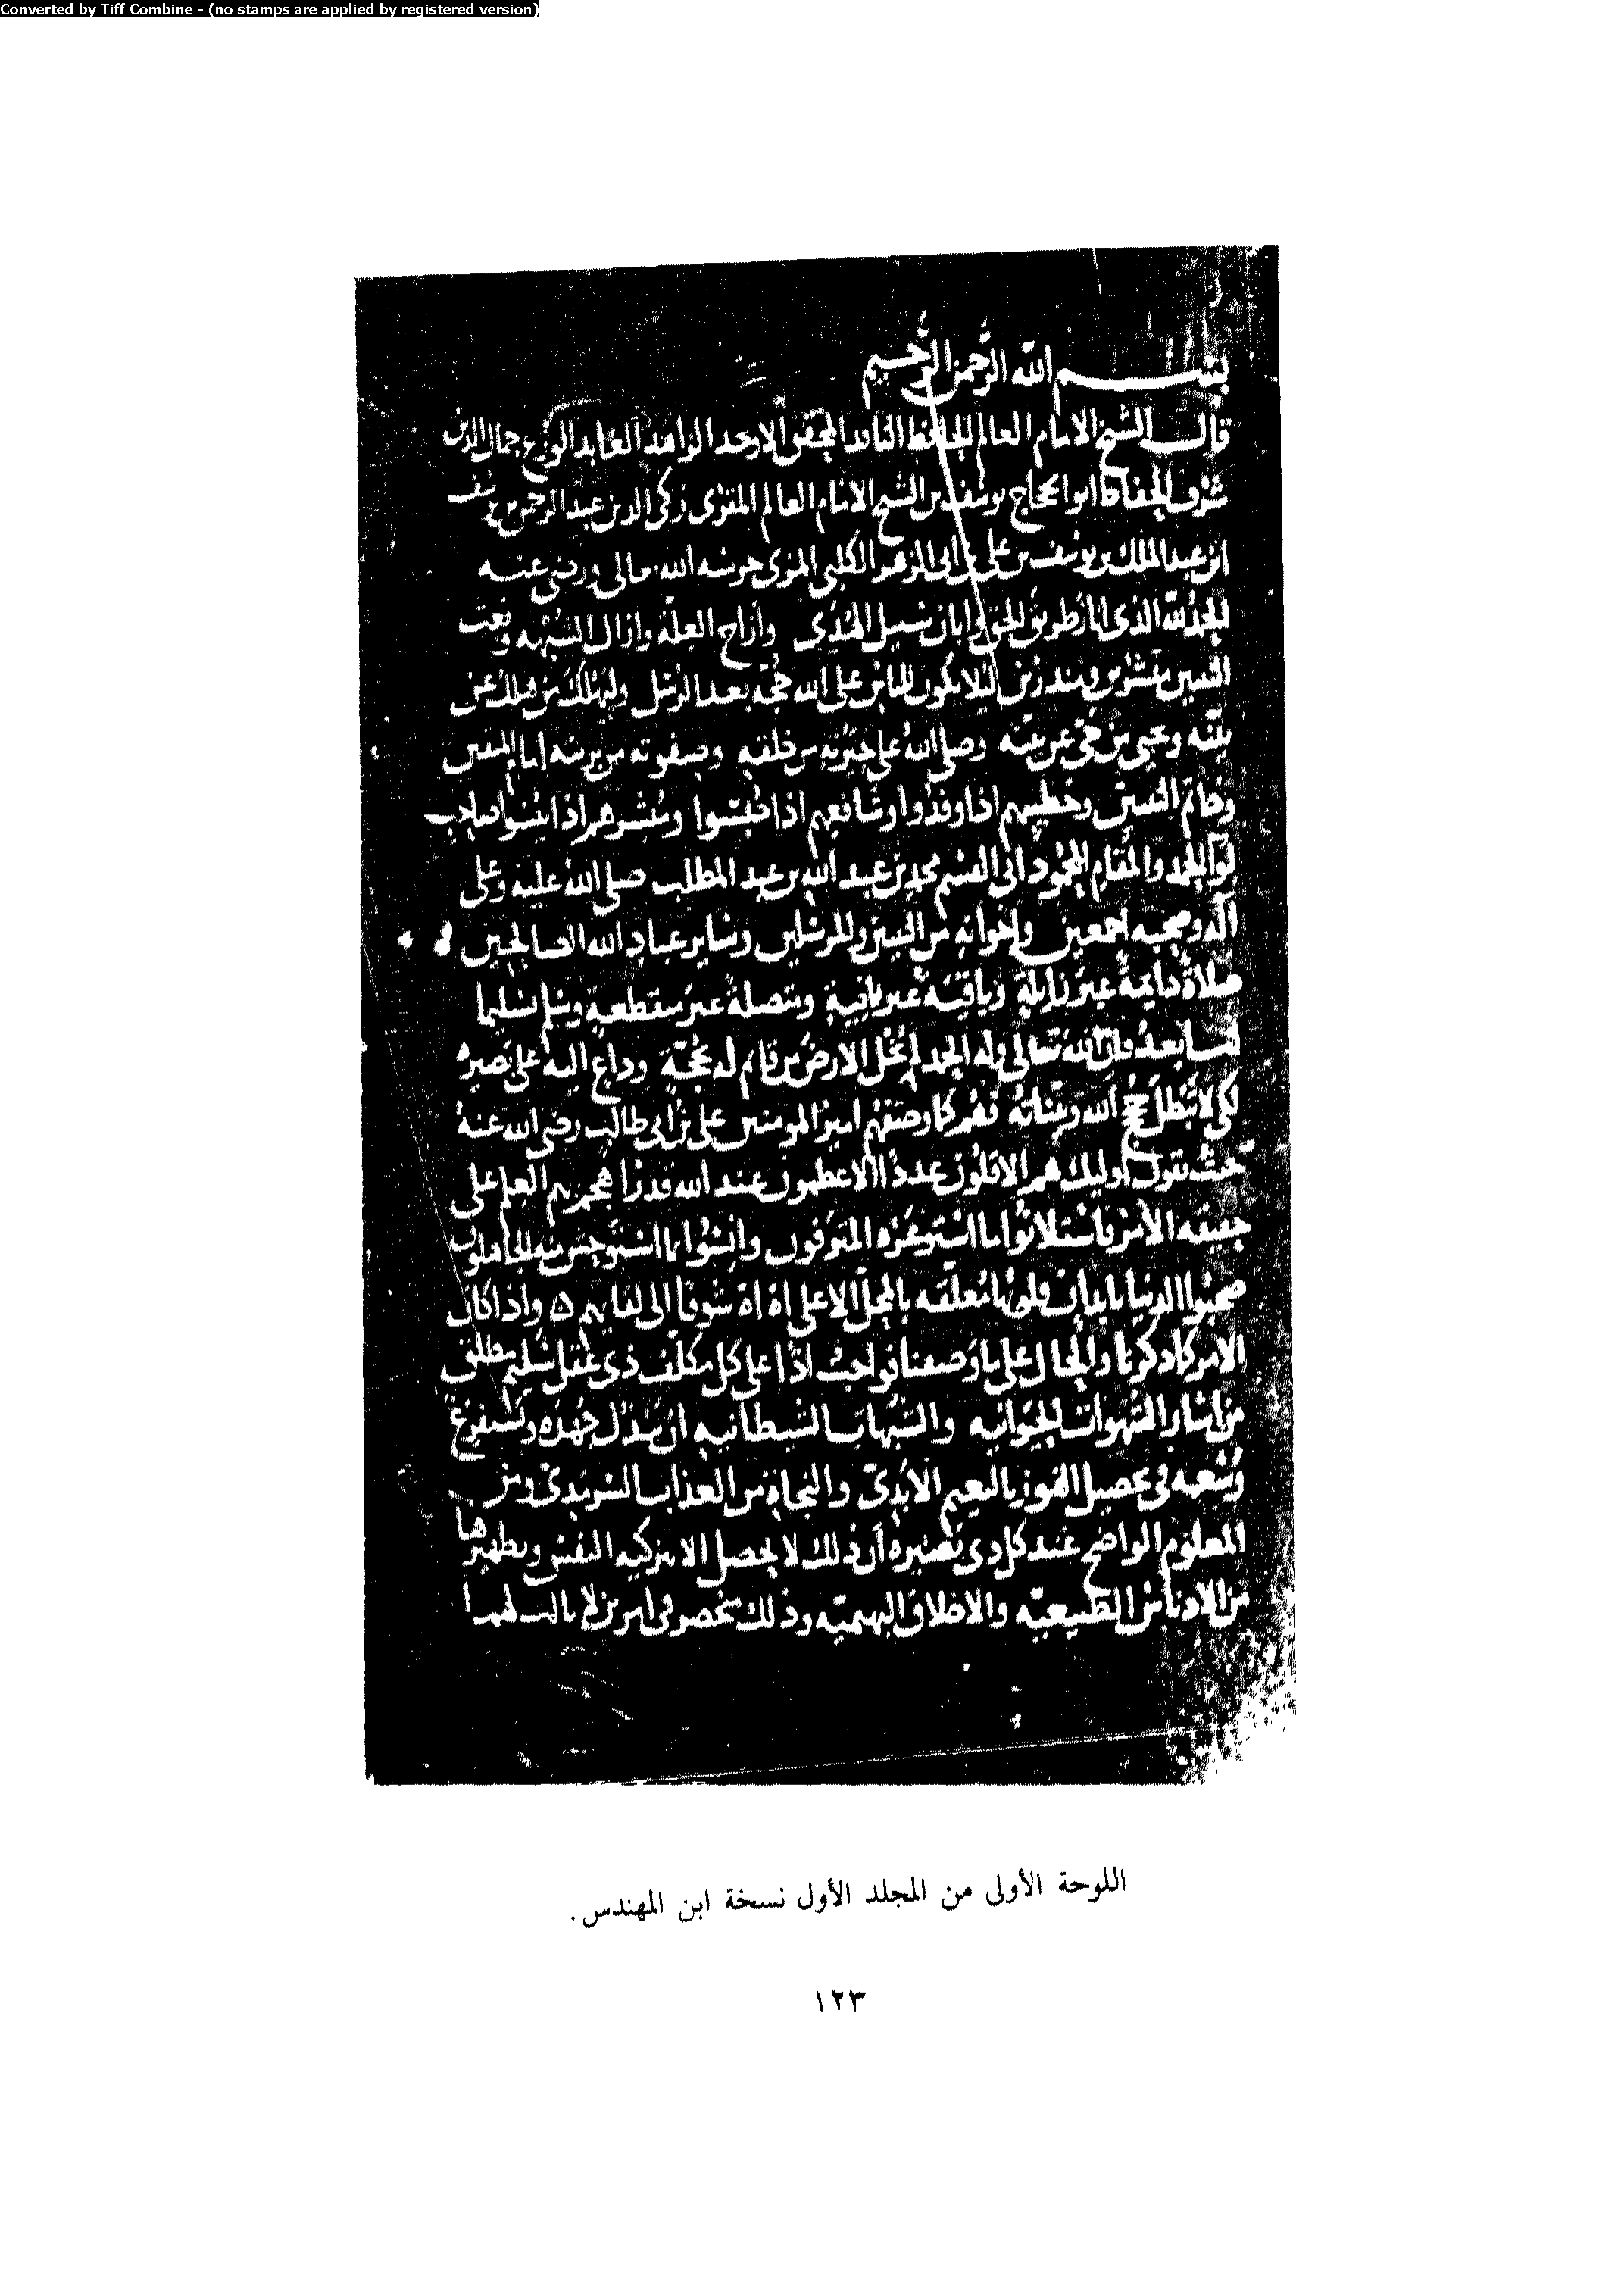 Converted by Tiff Combine - (no stamps are applied by registered version)
بسم الله الرحمن الرحيم
قال الشيخ الامام العالم الحافظ الناقد المحقق الاوحد الزاهد العابد الورع جمال الدين
شرف الحفاظ ابو الحجاج يوسف بن الشيخ الامام العالم المقرى زكى الدين عبد الرحمن بن يوسف
ابن عبد الملك بن يوسف بن على بن ابى الزهر الكلبى المزى حرسه الله تعالى ورضى عنه
الحمد لله الذى انار طريق الحق وابان سبيل الهدى وازاح العلة وازال الشبهه وبعث
النبيين مبشرين ومنذرين لئلا يكون للناس على الله حجة بعد الرسل وليهلك من هلك عن
بينه ويحيى من حى عن بينه وصلى الله على خيرته من خلقه وصفوته من بريته امام المتقين
وخاتم النبيين وخطيبهم اذا وفدوا وشافعهم اذا حبسوا ومبشرهم اذا ايسوا صاحب
لوا الحمد والمقام المحمود ابى القسم محمد بن عبد الله بن عبد المطلب صلى الله عليه وعلى
اله وصحبه اجمعين واخوانه من النبيين والمرسلين وساير عباد الله الصالحين
صلاة دايمة غير زايلة وباقية غير فانية ومتصلة غير منقطعة وسلم تسليما
اما بعد فان الله تعالى وله الحمد لم يخل الارض من قايم له بحجة وداع اليه على بصيره
لكى لا تبطل حجج الله وبيناته فهم كما وصفهم امير المومنين على بن ابى طالب رضى الله عنه
حيث يقول اوليك هم الاقلون عددا الاعظمون عند الله قدرا هجم بهم العلم على
حقيقه الامر فاستلانوا ما استوعره المترفون وانسوا بما استوحش منه الجاهلون
صحبوا الدنيا بابدان قلوبها معلقه بالمحل الاعلى اه اه شوقا الى لقايهم ٥ واذا كان
الامر كما ذكرنا والحال على ما وصفنا فواجب اذا على كل مكلف ذى عقل سليم مطلق
من اسار الشهوات الحيوانيه والشبهات الشيطانيه ان يبذل جهده ويستفرغ
وسعه فى تحصيل الفوز بالنعيم الابدى والنجاة من العذاب السرمدى ومن
المعلوم الواضح عند كل ذى بصيره ان ذلك لا يحصل الا بتزكيه النفس وتطهيرها
من الادناس الطبيعيه والاخلاق البهيميه وذلك منحصر فى امرين لا ثالث لهما
اللوحة الأولى من المجلد الأول نسخة ابن المهندس.
١٢٣